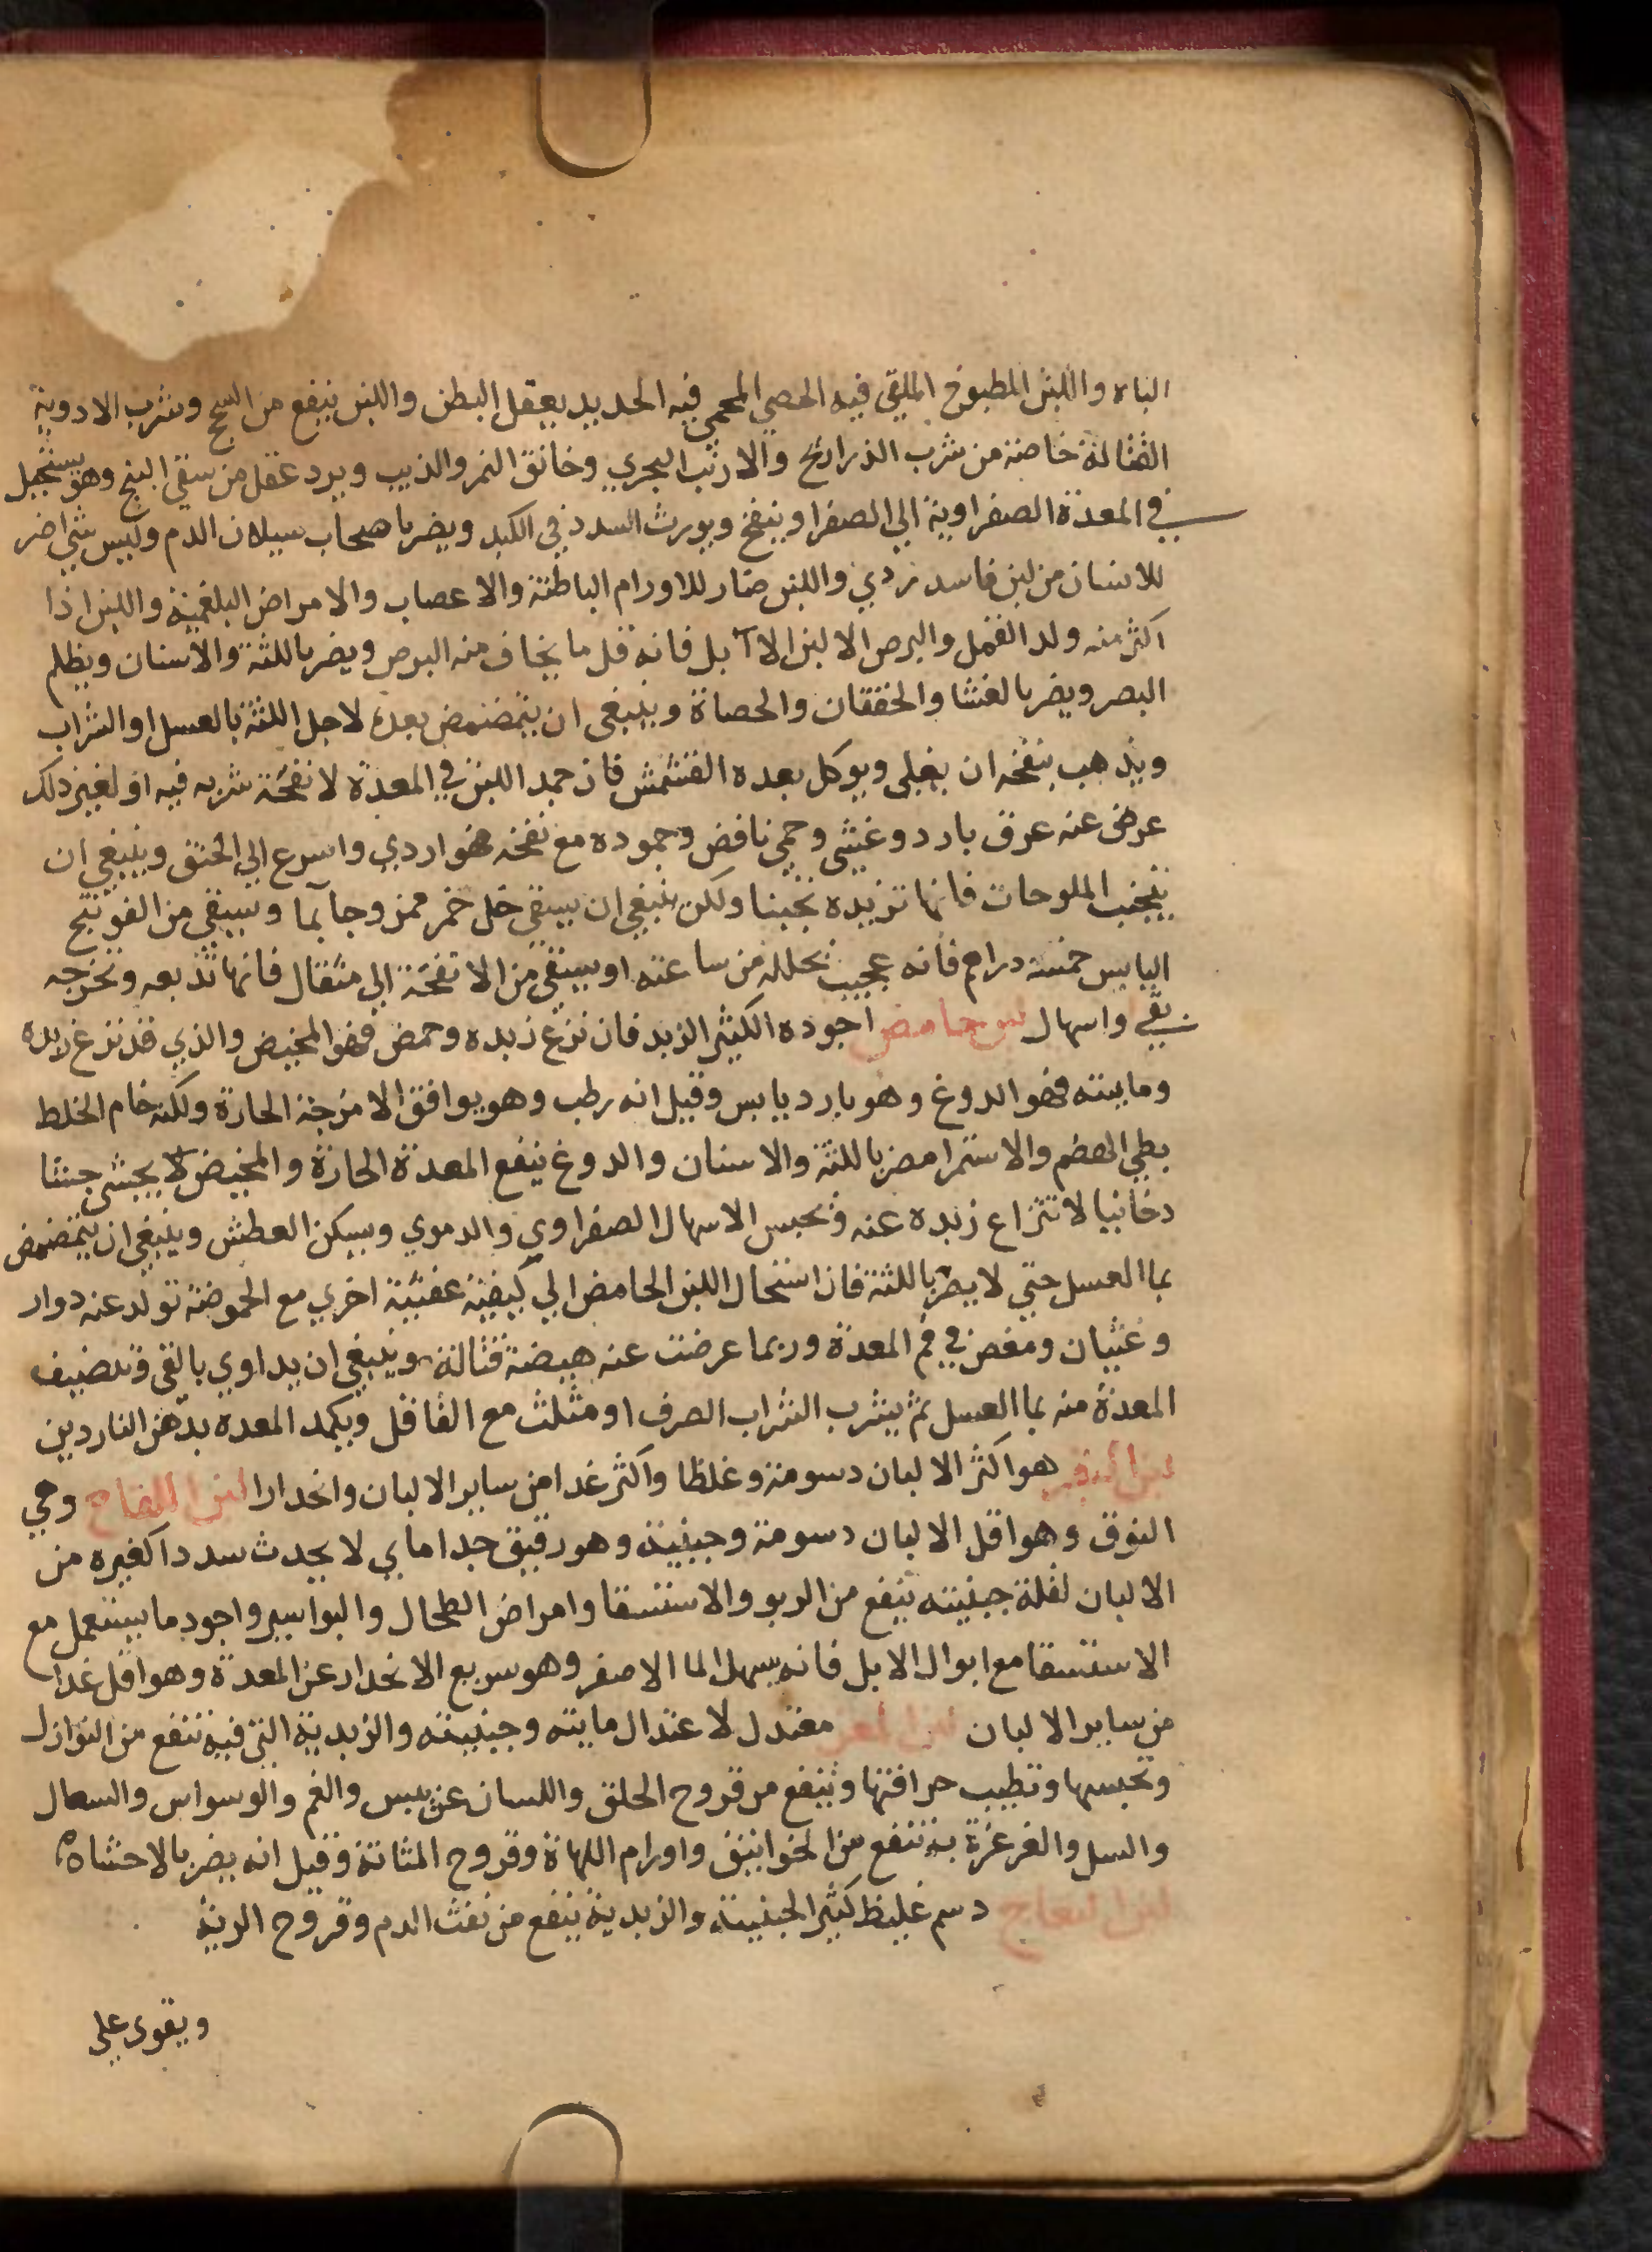 الباه واللبن المطبوخ الملقي فيه الحصي المحمي فيه الحديد يعقل البطن واللبن ينفع من السحج وشرب الادوية
القتالة خاصة من شرب الذراريح والارنب البحري وخانق النمر والذيب ويرد عقل من سقي البنج وهو يستحيل
في المعدة الصفراوية الي الصفرا وينفخ ويورث السدد في الكبد ويضر باصحاب سيلان الدم وليس شي اضر
للانسان من لبن فاسد ردي واللبن ضار للاورام الباطنة والاعصاب والامراض البلغمية واللبن اذا
اكثر منه ولد القمل والبرص الا لبن الابل فانه قل ما يخاف منه البرص ويضر باللثة والاسنان ويظلم
البصر ويضر بالغشا والخفقان والحصاة وينبغي ان يتمضمض بعده لاجل اللثة بالعسل او الشراب
ويذهب بنفخه ان يغلي ويوكل بعده المشمش فان جمد اللبن في المعدة لانفحة شربه فيه او لغير ذلك
عرض عنه عرق بارد وغشي وحمي نافض وجموده مع نفخه فهو اردي واسرع الي الخنق وينبغي ان
يتجنب الملوحات فانها تزيده تجبنا ولكن ينبغي ان يسقي خل خمر ممزوجا بما ويسقي من الفوتنج
اليابس خمسة دراهم فانه عجيب يحلله من ساعته او يسقي من الانفحة الي مثقال فانها تذيبه وتخرجه
بقي واسهال لبن حامض اجوده الكثير الزبد فان نزع زبده وحمض فهو المخيض والذي قد نزع زبده
وماييته فهو الدوغ وهو بارد يابس وقيل انه رطب وهو يوافق الامزجة الحارة ولكنه خام الخلط
بطي الهضم والاستمرا مضر باللثة والاسنان والدوغ ينفع المعدة الحارة والمخيض لا يجشي جشا
دخانيا لانتزاع زبده عنه ويحبس الاسهال الصفراوي والدموي ويسكن العطش وينبغي ان يتمضمض
بما العسل حتي لا يضر باللثة فان استحال اللبن الحامض الي كيفية عفنية اخري مع الحموضة تولد عنه دوار
وغثيان ومغص في فم المعدة وربما عرضت عنه هيضة قتالة وينبغي ان يداوي بالقي وتنضيف
المعدة منه بما العسل ثم يشرب الشراب الصرف او مثلث مع الفافل ويكمد المعده بدهن الناردين
لبن البقر هو اكثر الالبان دسومة وغلظا واكثر غدا من ساير الالبان وانحدارا لبن اللقاح وهي
النوق وهو اقل الالبان دسومة وجبنية وهو رقيق جدا ماي لا يحدث سددا كغيره من
الالبان لقلة جبنيته ينفع من الربو والاستسقا وامراض الطحال والبواسير واجود ما يستعمل مع
الاستسقا مع ابوال الابل فانه يسهل الما الاصفر وهو سريع الانحدار عن المعدة وهو اقل غدا
من ساير الالبان لبن المعز معتدل لاعتدال ماييته وجبنيته والزبدية التي فيه تنفع من النوازل
وتحبسها وتطيب حرافتها وينفع من قروح الحلق واللسان عن يبس والغم والوسواس والسعال
والسل والغرغرة به تنفع من الخوانيق واورام اللهاة وقروح المثانة وقيل انه يضر بالاحشاه
لبن النعاج دسم غليظ كثير الجبنية والزبدية ينفع من نفث الدم وقروح الرية
ويقوى علي